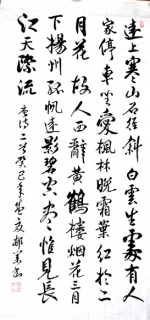 遠上寒山石徑斜白雲生處有人
家停車坐愛楓林晚霜葉紅於二
月花故人西辭黃鶴樓煙花三月
下揚州孤帆遠影碧空盡惟見長
江天際流
唐诗二首癸巳年